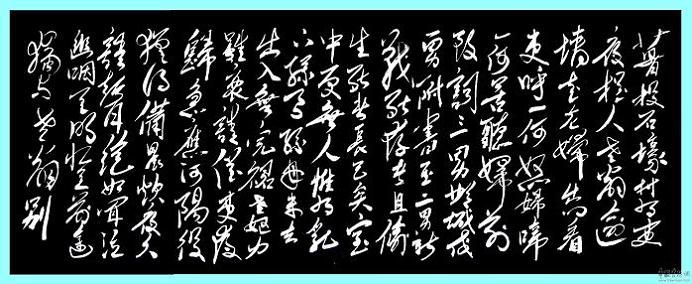 暮投石壕村有吏
夜捉人老翁逾
墻走老婦出門看
吏呼一何怒婦啼
一何苦聽婦前
致詞三男鄴城戍
一男附書至二男新
戰死存者且偷
生死者長已矣室
中更無人惟有乳
下孫有孫母未去
出入無完裙老嫗力
雖衰請從吏夜
歸急應河陽役
猶得備晨炊夜久
語聲絕如聞泣
幽咽天明登前途
獨與老翁別